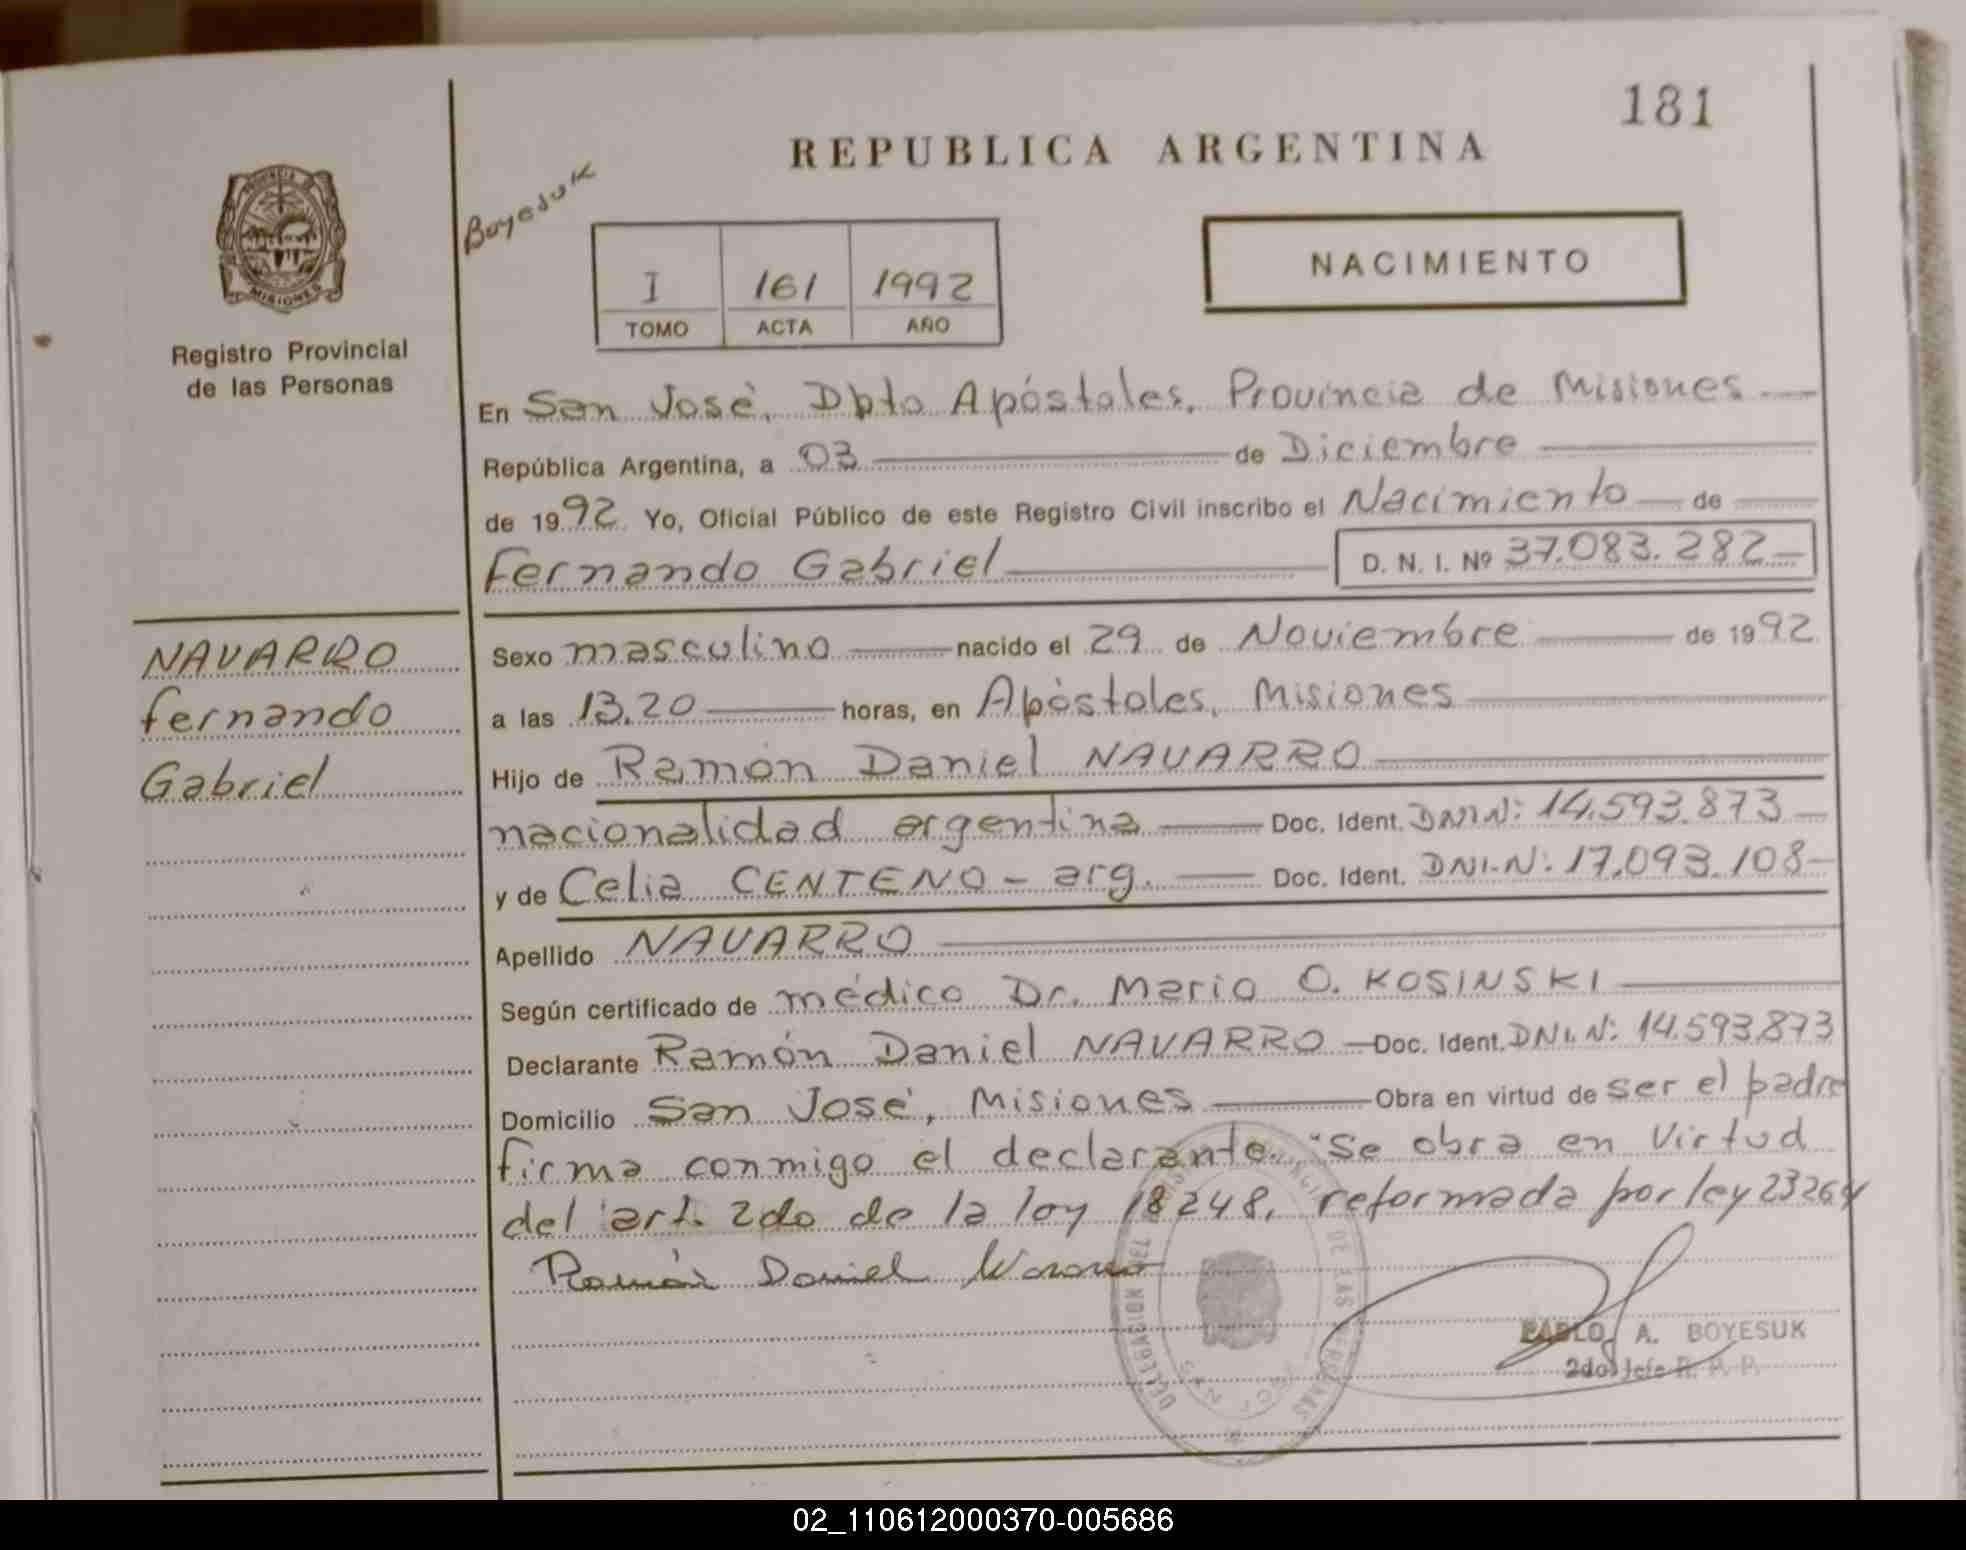 181
REPUBLICA ARGENTINA
Boyesuk
PROVINCIA DE
MISIONES
Registro Provincial
de las Personas
NACIMIENTO
I 161 1992
TOMO ACTA AÑO
En San José, Dpto Apóstoles, Provincia de Misiones
República Argentina, a 03 de Diciembre
de 1992 Yo, Oficial Público de este Registro Civil inscribo el Nacimiento de
Fernando Gabriel D. N. I. Nº 37.083.282
NAVARRO
Fernando
Gabriel
Sexo masculino nacido el 29 de Noviembre de 1992
a las 13,20 horas, en Apóstoles, Misiones
Hijo de Ramón Daniel NAVARRO
nacionalidad argentina Doc. Ident. DNI.N: 14.593.873
y de Celia CENTENO - arg. Doc. Ident. DNI.N: 17.093.108
Apellido NAVARRO
Según certificado de médico Dr. Mario O. KOSINSKI
Declarante Ramón Daniel NAVARRO Doc. Ident. DNI.N: 14.593.873
Domicilio San José, Misiones Obra en virtud de ser el padre
firma conmigo el declarante. "Se obra en virtud
del art. 2do de la ley 18248, reformada por ley 23264
Ramón Daniel Navarro
DELEGACION DEL DE LAS PERSONAS
SAN JOSE
PABLO A. BOYESUK
2do Jefe R. P. P.
02_110612000370-005686